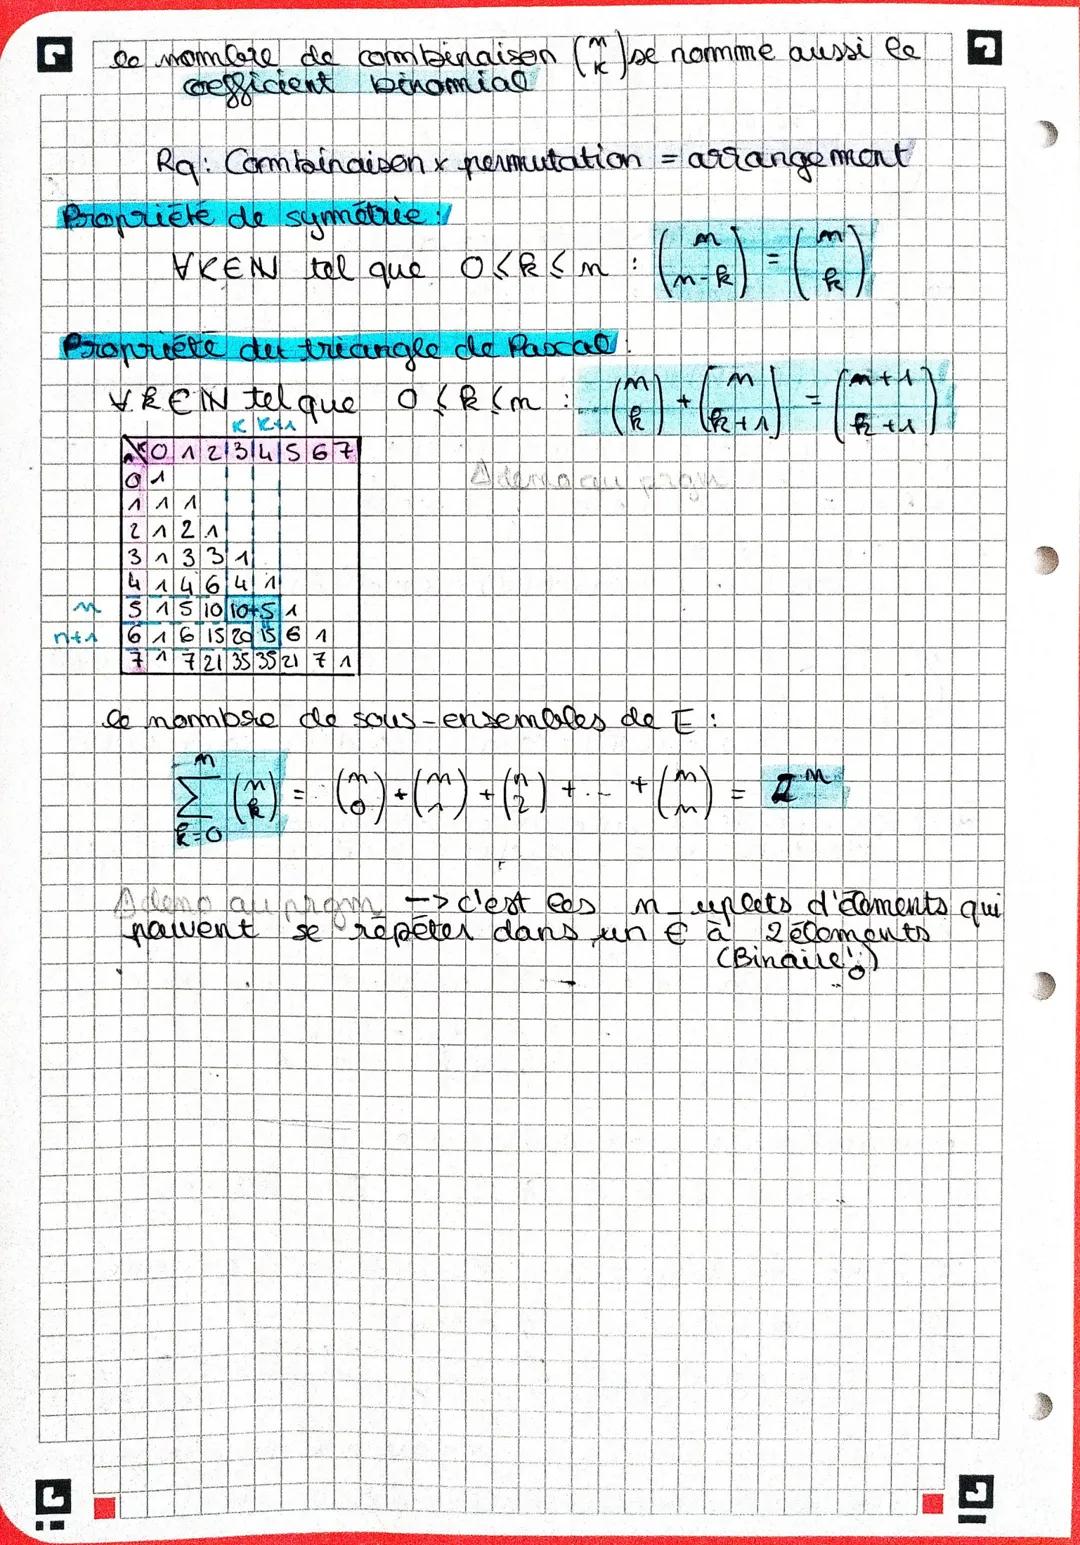 le nombre de combinaison (n k) se nomme aussi le
coefficient binomial
Rq: Combinaison x permutation = arrangement
Propriété de symétrie :
∀K∈ℕ tel que 0≤k≤n : (n n-k) = (n k)
Propriété du triangle de Pascal.
∀k∈ℕ tel que 0≤k≤n : (n k) + (n k+1) = (n+1 k+1)
K K+1
n K 0 1 2 3 4 5 6 7
0 1
Δ demo au prgm
1 1 1
2 1 2 1
3 1 3 3 1
4 1 4 6 4 1
n 5 1 5 10 10+5 1
n+1 6 1 6 15 20 15 6 1
7 1 7 21 35 35 21 7 1
le nombre de sous-ensembles de E :
n ∑ k=0 (n k) = (n 0) + (n 1) + (n 2) + ... + (n n) = 2^n
Δ demo au prgm -> c'est les n_uplets d'éléments qui
peuvent se répéter dans un E à 2 éléments
(Binaire!)